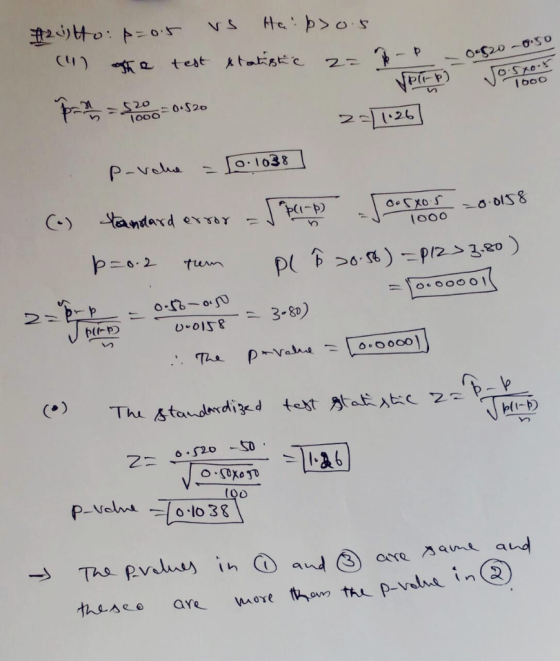 #2 i) H₀: p=0.5 vs Ha: p>0.5
(4) test statistic z = p̂-p / √(p(1-p)/n) = 0.520-0.50 / √(0.5x0.5/1000)
p̂ = x/n = 520/1000 = 0.520
z = 1.26
p-value = 0.1038
(•) standard error = √(p(1-p)/n) = √(0.5x0.5/1000) = 0.0158
p=0.2 P(p̂ >0.56) = P(z>3.80)
= 0.00001
z = p̂-p / √(p(1-p)/n) = 0.56-0.50 / 0.0158 = 3.80)
∴ The p-value = 0.00001
(•) The standardized test statistic z = p̂-p / √(p(1-p)/n)
z = 0.520-50 / √(0.50x050/100) = 1.26
p-value = 0.1038
→ The p-values in ① and ③ are same and
are more than the p-value in ②